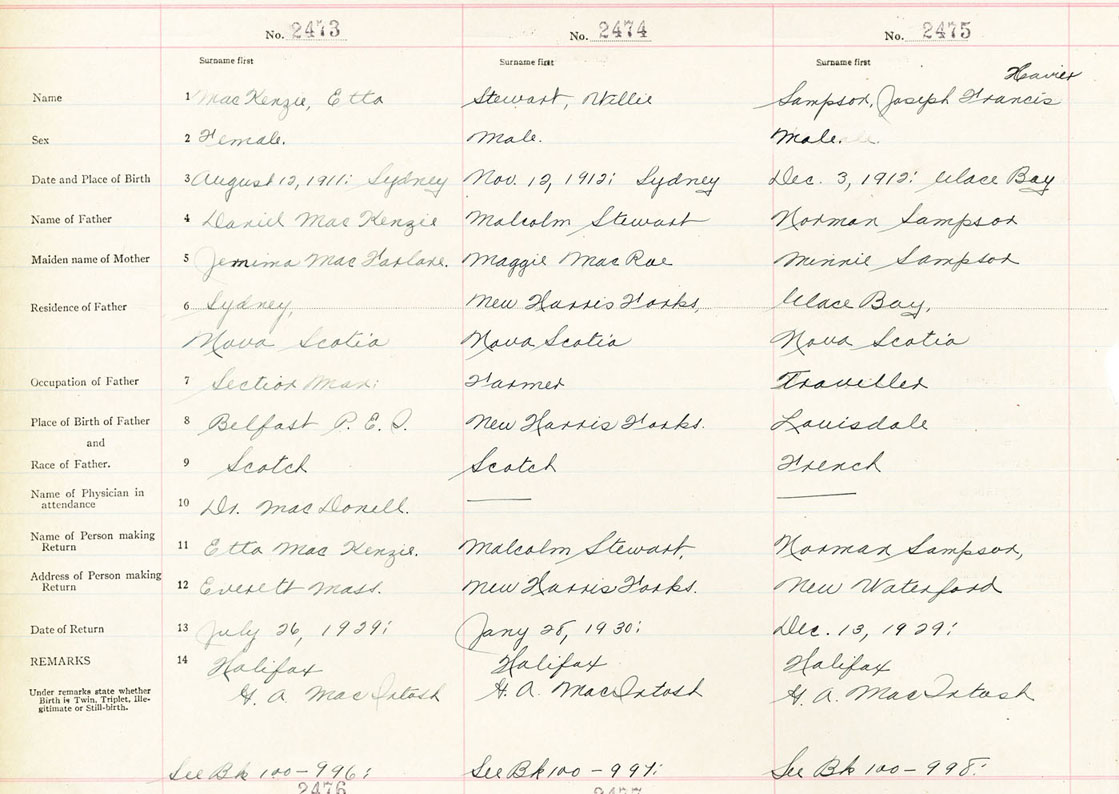 No. 2473 No. 2474 No. 2475
Surname first Surname first Surname first
Xavier
Name 1 MacKenzie, Etta Stewart, Willie Sampson, Joseph Francis
Sex 2 Female. Male. Male.
Date and Place of Birth 3 August 12, 1911: Sydney Nov. 12, 1912: Sydney Dec. 3, 1912: Glace Bay
Name of Father 4 Daniel MacKenzie Malcolm Stewart Norman Sampson
Maiden name of Mother 5 Jemima MacFarlane. Maggie MacRae Minnie Sampson
Residence of Father 6 Sydney, New Harris Forks, Glace Bay,
Nova Scotia Nova Scotia Nova Scotia
Occupation of Father 7 Section Man: Farmer Traveller
Place of Birth of Father 8 Belfast P. E. I. New Harris Forks. Louisdale
and
Race of Father. 9 Scotch Scotch French
Name of Physician in
attendance 10 Dr. MacDonell.
Name of Person making
Return 11 Etta MacKenzie. Malcolm Stewart, Norman Sampson,
Address of Person making
Return 12 Everett Mass. New Harris Forks. New Waterford
Date of Return 13 July 26, 1929: Jany 28, 1930: Dec. 13, 1929:
REMARKS 14 Halifax Halifax Halifax
Under remarks state whether
Birth is Twin, Triplet, Ille-
gitimate or Still-birth.
H. A. MacIntosh H. A. MacIntosh H. A. MacIntosh
See Bk 100-996: See Bk 100-997: See Bk 100-998:
2476 2477